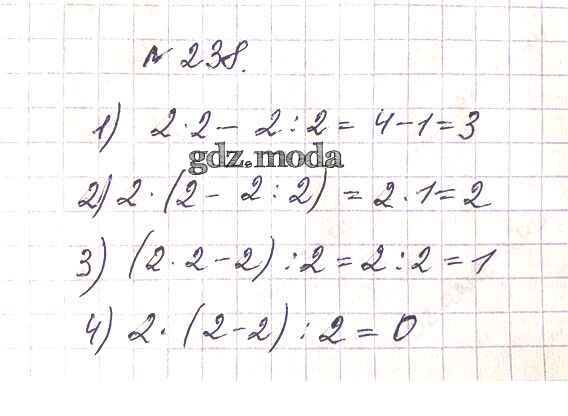 № 238.
1) 2·2 - 2:2 = 4-1=3
gdz.moda
2) 2·(2 - 2:2) = 2·1=2
3) (2·2-2):2=2:2=1
4) 2·(2-2):2=0